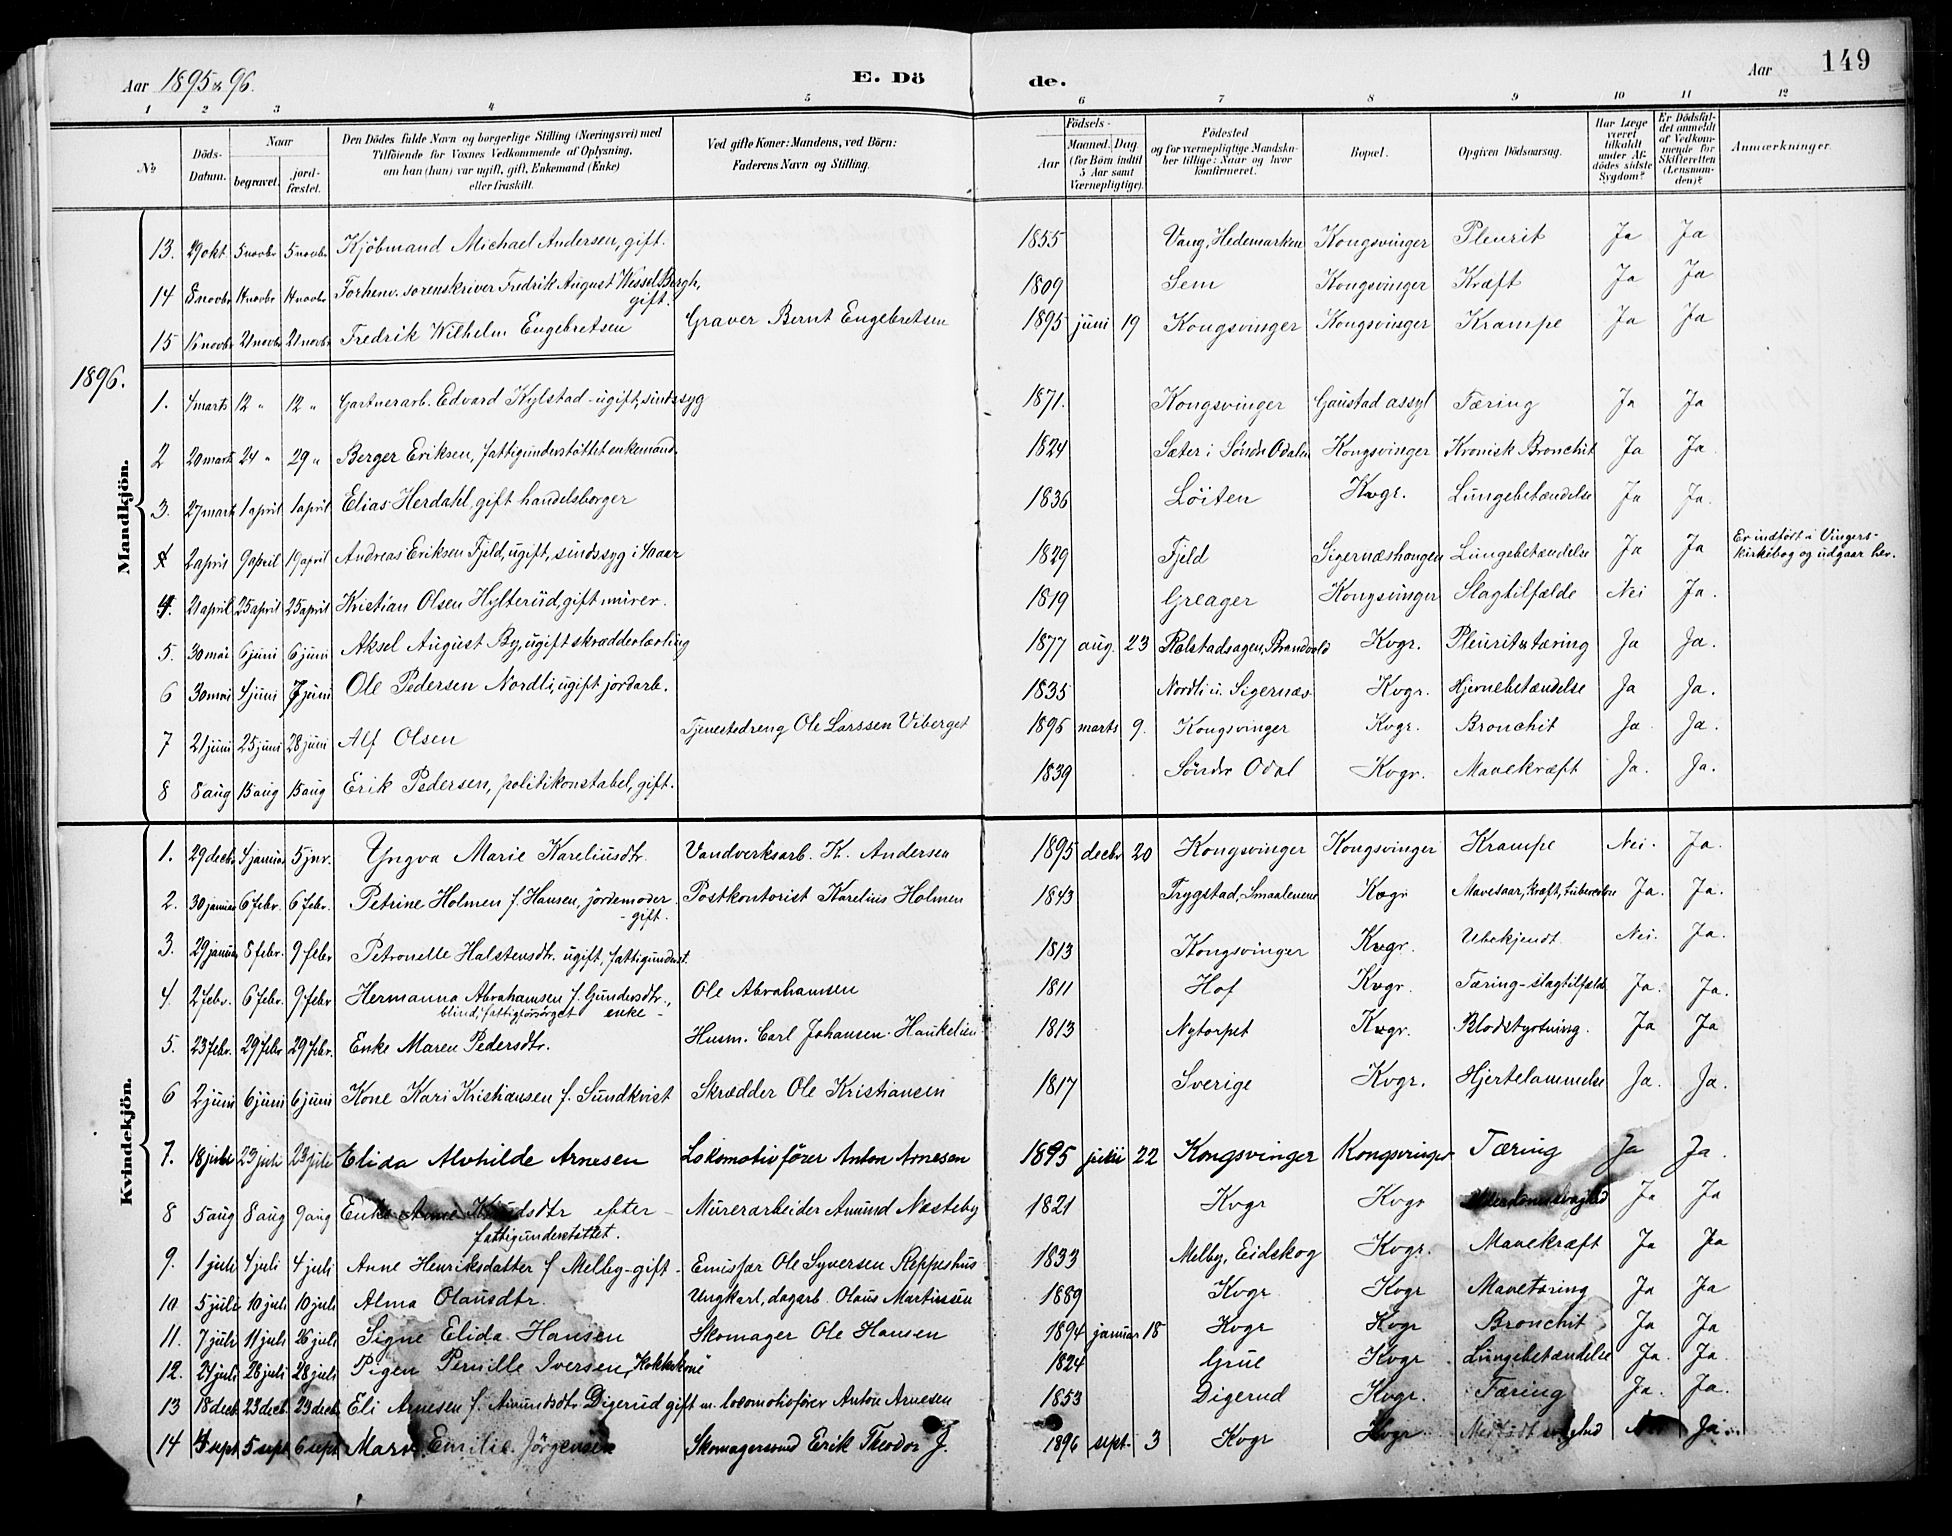 Aar 1895 & 96. E. Dö de. Aar 149
1 2 3 4 5 6 7 8 9 10 11 12
No
Döds-Datum.
Naar begravet. jordfæstet.
Den Dödes fulde Navn og borgerlige Stilling (Næringsvei) med
Tilföiende for Voxnes Vedkommende af Oplysning,
om han (hun) var ugift, gift, Enkemand (Enke)
eller fraskilt.
Ved gifte Koner: Mandens, ved Börn:
Faderens Navn og Stilling.
Födsels-
Aar Maaned. Dag.
(for Börn indtil 5 Aar samt Værnepligtige).
Födested
og for værnepligtige Mandskaber tillige: Naar og hvor konfirmeret.
Bopæl.
Opgiven Dödsaarsag.
Har Læge været tilkaldt under Afdödes sidste Sygdom?
Er Dödsfaldet anmeldt af Vedkommende for Skifteretten (Lensmanden)?
Anmærkninger.
Mandkjön.
13. 29 okt 5 novbr 5 novbr Kjöbmand Michael Andersen, gift. 1855 Vang, Hedemarken Kongsvinger Pleurit Ja Ja
14 8 novbr 14 novbr 14 novbr Forhenv. sorenskriver Fredrik August Wessel Bergh, gift. 1809 Sem Kongsvinger Kræft Ja Ja
15 16 novbr 21 novbr 21 novbr Fredrik Wilhelm Engebretsen Graver Bernt Engebretsen 1895 juni 19 Kongsvinger Kongsvinger Krampe Ja Ja
1896.
1. 4 marts 12 " 12 " Gartnerarb. Edvard Kylstad - ugift, sindssyg 1871. Kongsvinger Gaustad assyl Tæring Ja Ja
2 20 mart 24 " 29 " Berger Eriksen, fattigunderstöttet enkemand. 1824 Sæter i Søndr Odalen Kongsvinger Kronisk Bronchit Ja Ja
3. 27 mart 1 april 1 april Elias Herdahl, gift handelsborger 1836 Löiten Kvgr. Lungebetændelse Ja Ja.
4 2 april 9 april 19 april Andreas Eriksen Fjeld, ugift, sindssyg i 40 aar 1829 Fjeld Sigernæshangen Lungebetændelse Ja Ja Er indført i Vingers-
kirkebog og udgaar her.
4. 21 april 25 april 25 april Kristian Olsen Hylterud, gift murer. 1819 Greager Kongsvinger Slagtilfælde Nei Ja.
5. 30 mai 6 juni 6 juni Aksel August By, ugift skrædderlærling 1877 aug. 23 Brandvold Kvgr. Pleurit & tæring Ja Ja.
6 30 mai 4 juni 7 juni Ole Pedersen Nordli, ugift jordarb. 1835 Nordli u. Sigernæs Kvgr. Hjernebetændelse Ja Ja.
7 21 juni 25 juni 28 juni Alf Olsen Tjenestedreng Ole Larssen Viberget 1896 marts 9. Kongsvinger Kvgr. Bronchit Ja Ja.
8 8 aug 15 aug 15 aug Erik Pedersen, politikonstabel, gift. 1839 Søndr Odal Kvgr. Mavekræft Ja. Ja.
Kvindekjön.
1. 29 decbr 4 januar 5 jnr. Yngva Marie Kareliusdtr. Vandverksarb. K. Andersen 1895 decbr 20 Kongsvinger Kongsvinger Krampe Nei. Ja.
2. 30 januar 6 febr. 6 febr. Petrine Holmen f. Hansen, jordemoder - gift. Postkontorist Karelius Holmen 1843 Trygstad, Smaalenene Kvgr Mavesaar, Kræft, Ja. Ja.
3. 29 januar 8 febr. 9 febr Petronelle Halstensdtr. ugift, fattigunderst. 1813 Kongsvinger Kvgr. Ubekjendt. Nei. Ja.
4. 2 febr. 6 febr. 9 febr Hermanna Abrahamsen f. Gundersdtr., Ole Abrahamsen 1811 Hof Kvgr. Tæring - slagtilfælde Ja. Ja.
blind, fattigforsørget enke -
5. 23 febr. 29 febr. 29 febr. Enke Maren Pedersdtr. Husm. Carl Johansen Haukelien 1813 Nytorpet Kvgr. Blodstyrtning. Ja Ja
6 2 juni 6 juni 6 juni Kone Kari Kristiansen f. Sundkvist Skrædder Ole Kristiansen 1817 Sverige Kvgr. Hjertelammelse Ja. Ja.
7. 18 juli 23 juli 23 juli Elida Alvhilde Arnesen Lokomotivfører Anton Arnesen 1895 juli 22 Kongsvinger Kongsvinger Tæring Ja Ja.
8 5 aug 8 aug 9 aug Enke efter - Murerarbeider Amund Næsteby 1821 Kvgr Kvgr Ja Ja
fattigunderstøttet.
9. 1 juli 4 juli 4 juli Anne Henriksdatter f Melby - gift - Emissær Ole Syversen Reppeshus 1833 Melby, Eidskog Kvgr. Mavekræft Ja Ja
10. 5 juli 10 juli 10 juli Alma Olausdtr. Ungkarl, dagarb. Olaus Martinsen 1889 Kvgr Kvgr Mavetæring Ja Ja
11. 7 juli 11 juli 26 juli Signe Elida Hansen Skomager Ole Hansen 1894 januar 18 Kvgr Kvgr Bronchit Ja Ja
12. 24 juli 28 juli 28 juli Pigen Pernille Iversen, Kokkekone 1824 Grue Kvgr. Lungebetændelse Ja. Ja.
13 18 decbr. 23 decbr. 23 decbr. Eli Arnesen f. Amundsdtr Digerud gift m. locomotivfører Anton Arnesen 1853 Digerud Kvgr. Tæring Ja. Ja.
14 4 sept 5 sept 6 sept Emilie Jörgensen Skomagersvend Erik Theodor J. 1896 sept. 3 Kvgr Kvgr Ja.